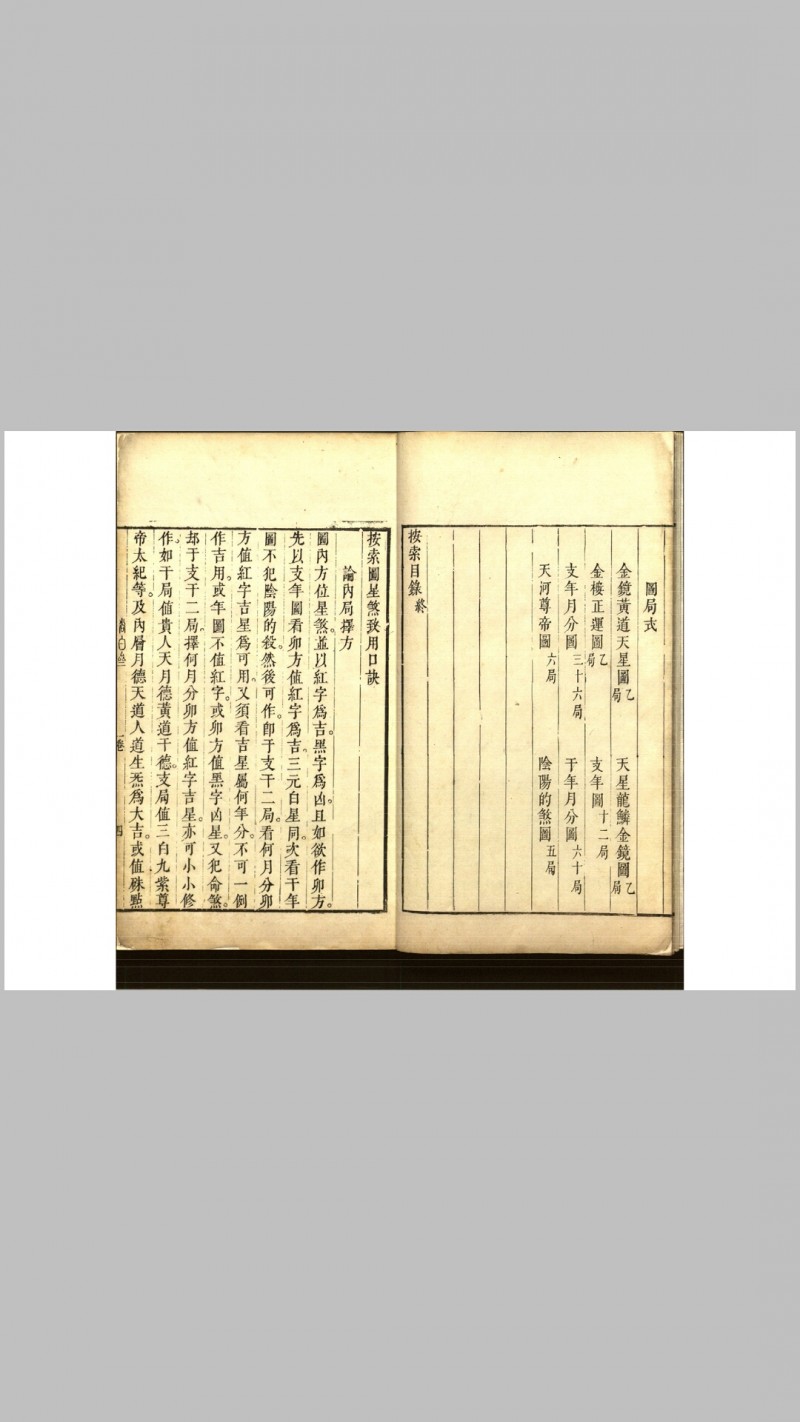 圖局式
金鏡黃道天星圖乙局　天星龍鱗金鏡圖乙局
金樓正運圖乙局　支年圖十二局
支年月分圖三十六局　干年月分圖六十局
天河尊帝圖六局　陰陽的煞圖五局
按索目錄終
按索圖星煞致用口訣
論內局擇方
圖內方位星煞。並以紅字為吉。黑字為凶。且如欲作卯方。
先以支年圖看卯方值紅字為吉。三元白星同。次看干年
圖不犯陰陽的殺。然後可作。卽于支干二局。看何月分卯
方值紅字吉星為可用。又須看吉星屬何年分。不可一例
作吉用。或年圖不值紅字。或卯方值黑字凶星。又犯命煞。
却于支干二局。擇何月分卯方值紅字吉星。亦可小小修
作。如干局值貴人天月德黃道干德。支局值三白九紫尊
帝太紀等。及內層月德天道人道生炁為大吉。或值硃點
卷 四